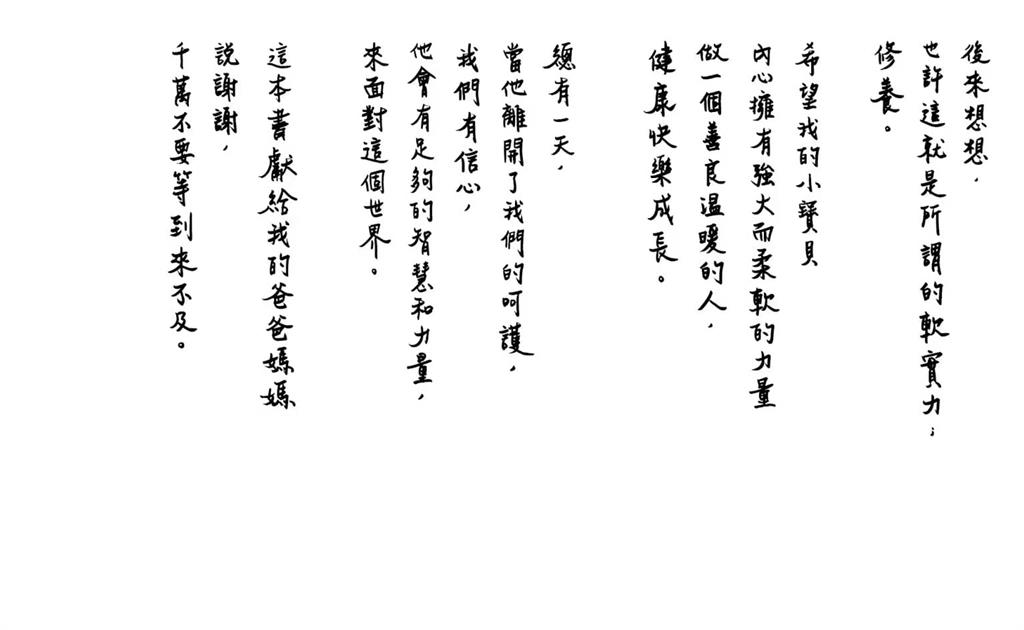 後來想想，
也許這就是所謂的軟實力；
修養。
希望我的小寶貝
內心擁有強大而柔軟的力量
做一個善良溫暖的人，
健康快樂成長。
總有一天，
當他離開了我們的呵護，
我們有信心，
他會有足夠的智慧和力量，
來面對這個世界。
這本書獻給我的爸爸媽媽
說謝謝，
千萬不要等到來不及。